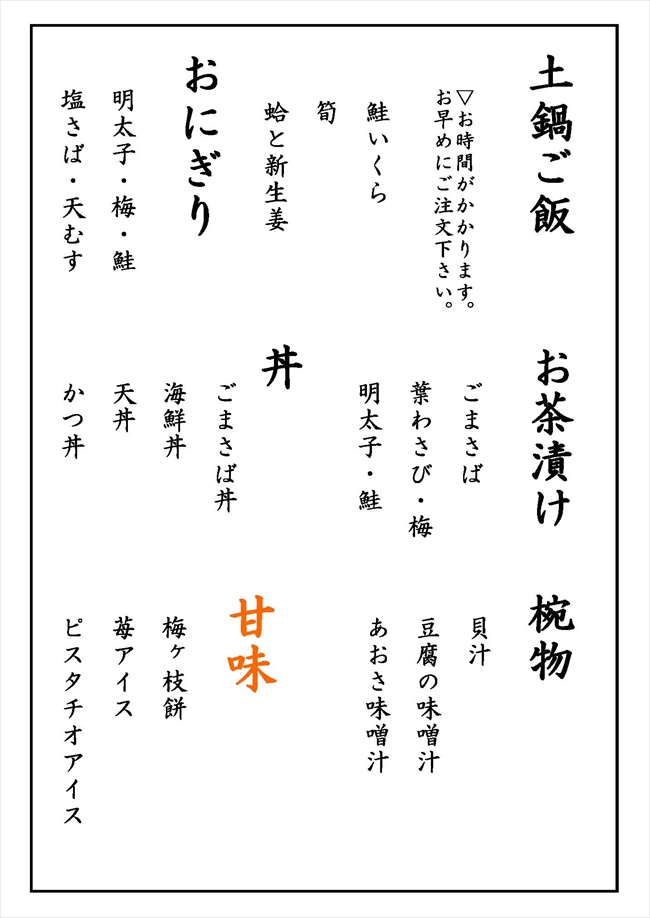 土鍋ご飯
▽お時間がかかります。
お早めにご注文下さい。
鮭いくら
筍
蛤と新生姜
おにぎり
明太子・梅・鮭
塩さば・天むす
お茶漬け
ごまさば
葉わさび・梅
明太子・鮭
丼
ごまさば丼
海鮮丼
天丼
かつ丼
椀物
貝汁
豆腐の味噌汁
あおさ味噌汁
甘味
梅ヶ枝餅
苺アイス
ピスタチオアイス